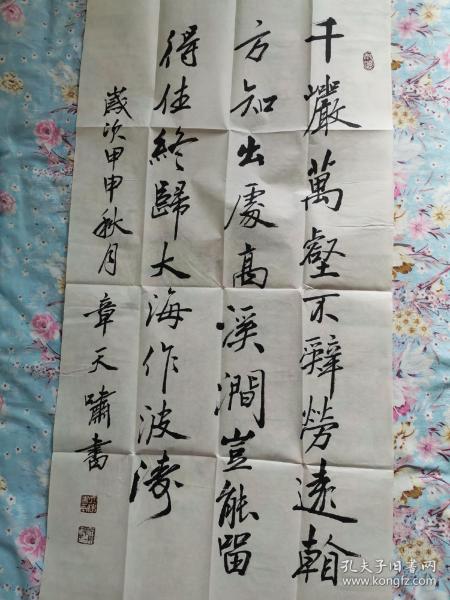 千巖萬壑不辭勞遠翰
方知出處高溪澗豈能留
得住終歸大海作波濤
歲次甲申秋月章天嘯書
孔夫子旧书网
www.kongfz.com